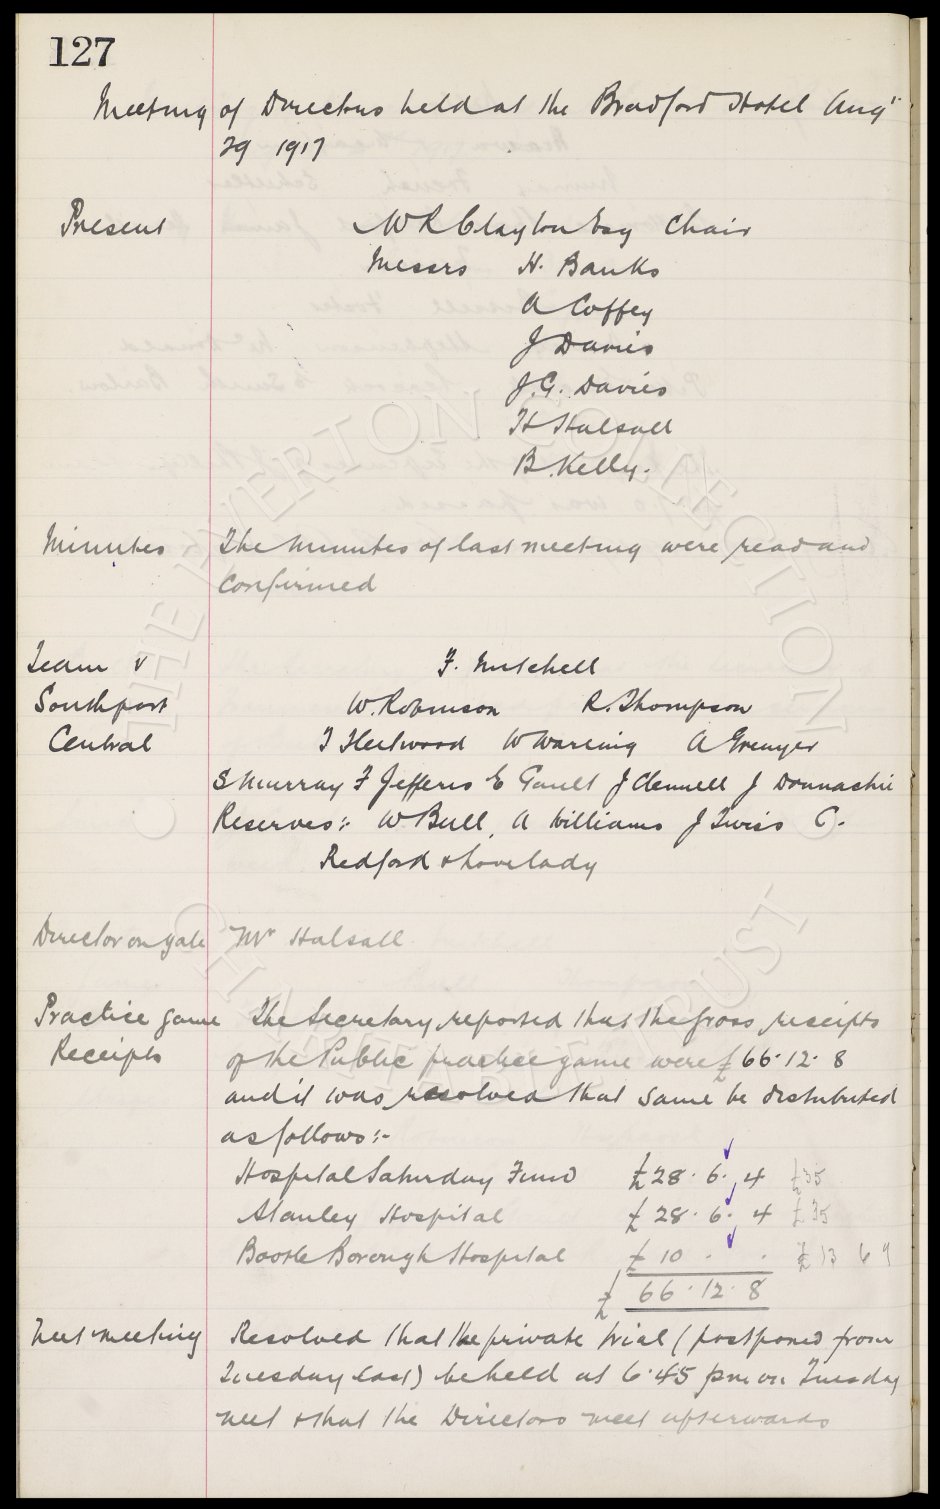 127
Meeting of Directors held at the Bradford Hotel Augt
29 1917
Present W R Clayton Esq Chair
Messrs H. Banks
A Coffey
J Davies
J. G. Davies
H Halsall
B. Kelly.
Minutes The minutes of last meeting were read and
confirmed
Team v F. Mitchell
Southport W. Robinson R. Thompson
Central T Fleetwood W Wareing A Grenyer
S Murray F Jefferis E Gault J Clennell J Donnachie
Reserves:- W Bull, A Williams J Twiss C.
Redford & Lovelady
Director on gate Mr Halsall
Practice game The Secretary reported that the gross receipts
Receipts of the Public practice game were £66.12.8
and it was resolved that same be distributed
as follows:-
Hospital Saturday Fund £28.6.4 £35
Stanley Hospital £28.6.4 £35
Bootle Borough Hospital £10 . . £13 6 9
£66.12.8
Next meeting Resolved that the private trial (postponed from
Tuesday last) be held at 6.45 pm on Tuesday
next & that the Directors meet afterwards
THE EVERTON COLLECTION
CHARITABLE TRUST